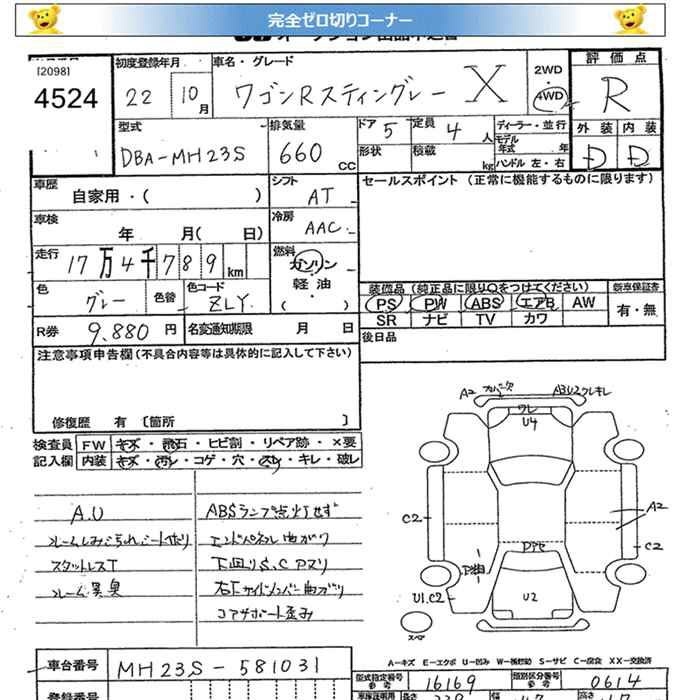 完全ゼロ切りコーナー
[2098]
4524
初度登録年月
22 10月
車名・グレード
ワゴンRスティングレー X
2WD
4WD
評価点
R
外装 内装
D D
型式
DBA-MH23S
排気量
660 CC
ドア 5
形状
定員 4 人
積載 kg
ディーラー・並行
モデル年式 年
ハンドル 左・右
車歴
自家用・( )
シフト
AT
セールスポイント (正常に機能するものに限ります)
車検
年 月( 日)
冷房
AAC
走行
17万4千789km
燃料
ガソリン
軽油
( ・ )
色
グレー
色替
色コード
ZLY
装備品 (純正品に限り○をつけてください)
PS PW ABS エアB AW
SR ナビ TV カワ
新車保証書
有・無
R券
9,880 円
名変通知期限 月 日
後日品
注意事項申告欄(不具合内容等は具体的に記入して下さい)
修復歴 有 〔箇所 〕
検査員 FW キズ・飛石・ヒビ割・リペア跡・×要
記入欄 内装 キズ・汚レ・コゲ・穴・スレ・キレ・破レ
A.U
スタットレスT
ルーム異臭
ABSランプ点灯せず
エンドパネル曲がり
下廻りS,Cアスリ
右下サイドメンバー曲がり
コアサポート歪み
A2
A3U2ワレキレ
ワレ
U4
A2
C2
C2
U1.C2
U2
スペア
A－キズ E－エクボ U－凹み W－補修跡 S－サビ C－腐食 XX－交換済
車台番号
MH23S-581031
型式指定番号
参考
16169
類別区分番号
参考
0614
登録番号